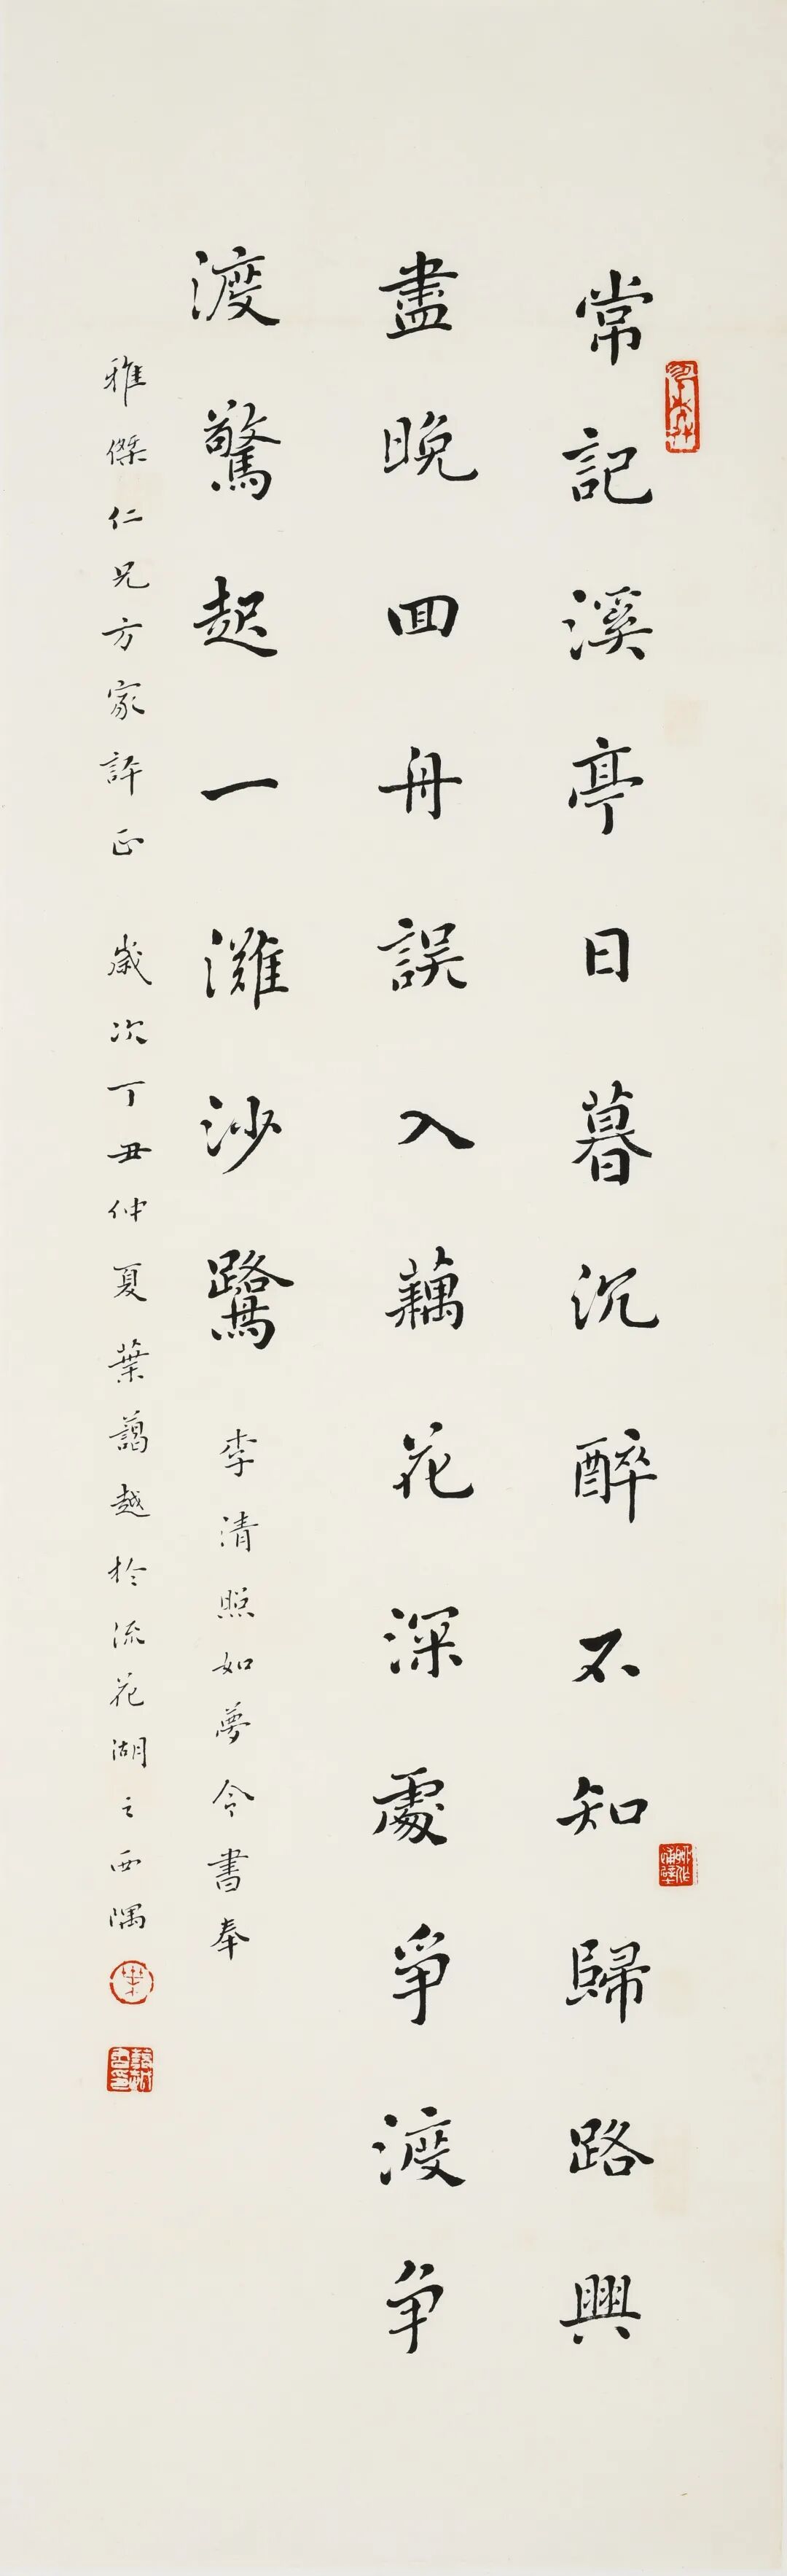 常記溪亭日暮沉醉不知歸路興
盡晚回舟誤入藕花深處爭渡爭
渡驚起一灘沙鷺 李清照如夢令書奉
雅傑仁兄方家評正 歲次丁丑仲夏葉藹越於流花湖之西隅